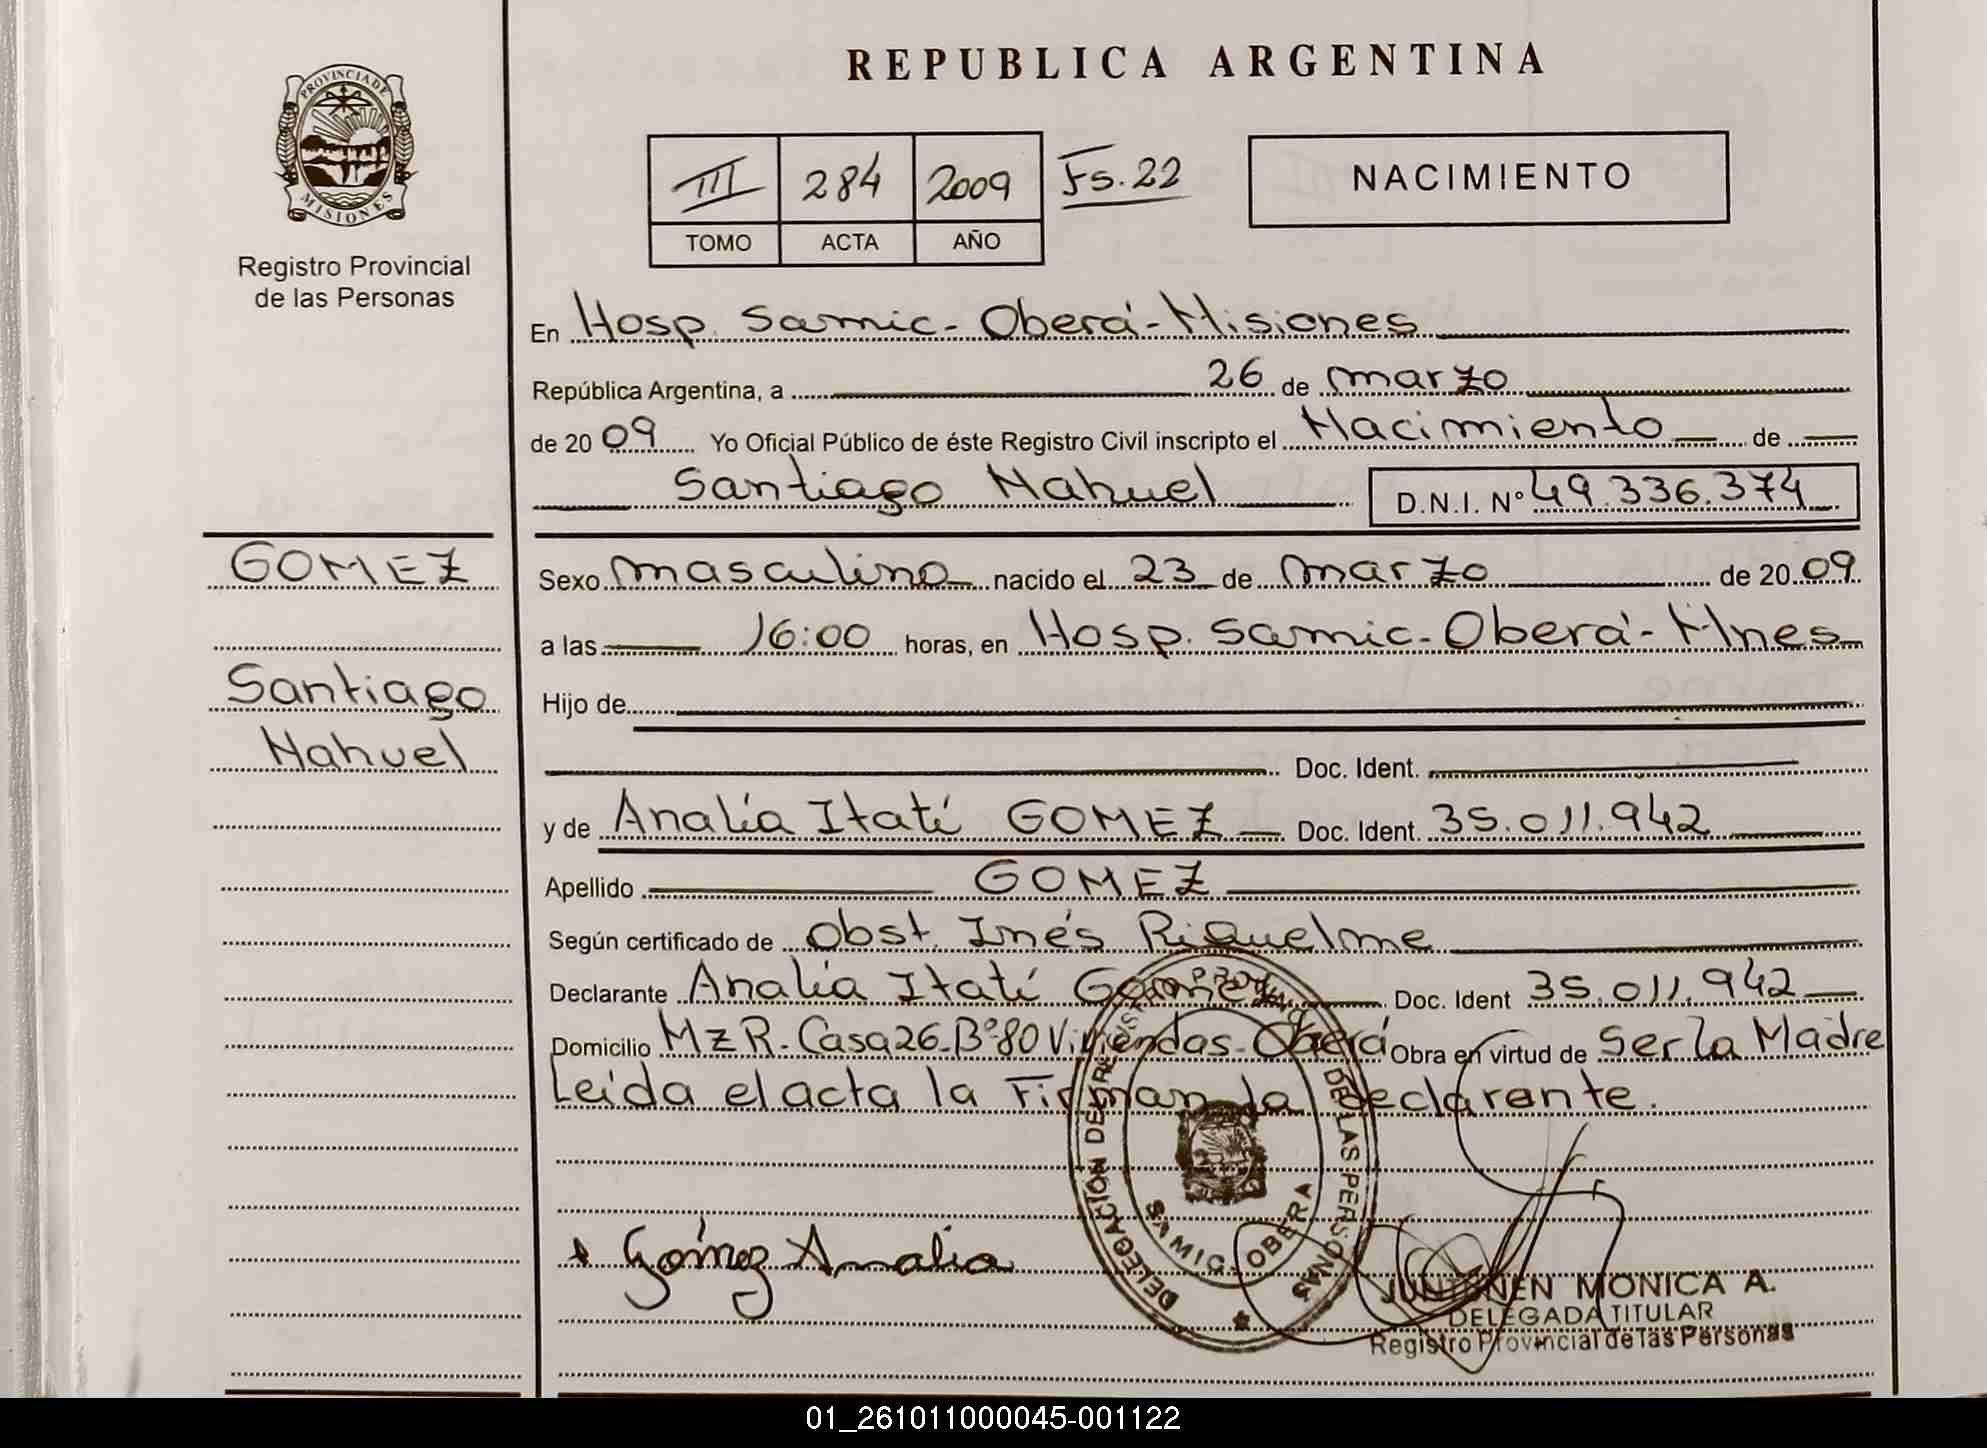 REPUBLICA ARGENTINA
PROVINCIA DE MISIONES
Registro Provincial
de las Personas
III 284 2009 Fs. 22
TOMO ACTA AÑO
NACIMIENTO
En Hosp. Samic - Oberá - Misiones
República Argentina, a 26 de marzo
de 2009 Yo Oficial Público de éste Registro Civil inscripto el Nacimiento de
Santiago Nahuel D.N.I. Nº 49.336.374
GOMEZ
Santiago
Nahuel
Sexo masculino nacido el 23 de marzo de 2009
a las 16:00 horas, en Hosp. Samic - Oberá - Mnes
Hijo de
Doc. Ident.
y de Analía Itatí GOMEZ Doc. Ident. 35.011.942
Apellido GOMEZ
Según certificado de Obst. Inés Riquelme
Declarante Analía Itatí Gomez Doc. Ident 35.011.942
Domicilio Mz R. Casa 26. Bº 80 Viviendas - Oberá Obra en virtud de Ser la Madre
Leida el acta la Firman la declarante.
Gómez Analia
DELEGACIÓN DEL REGISTRO PROVINCIAL DE LAS PERSONAS
SAMIC. OBERA
JUNTONEN MONICA A.
DELEGADA TITULAR
Registro Provincial de las Personas
01_261011000045-001122